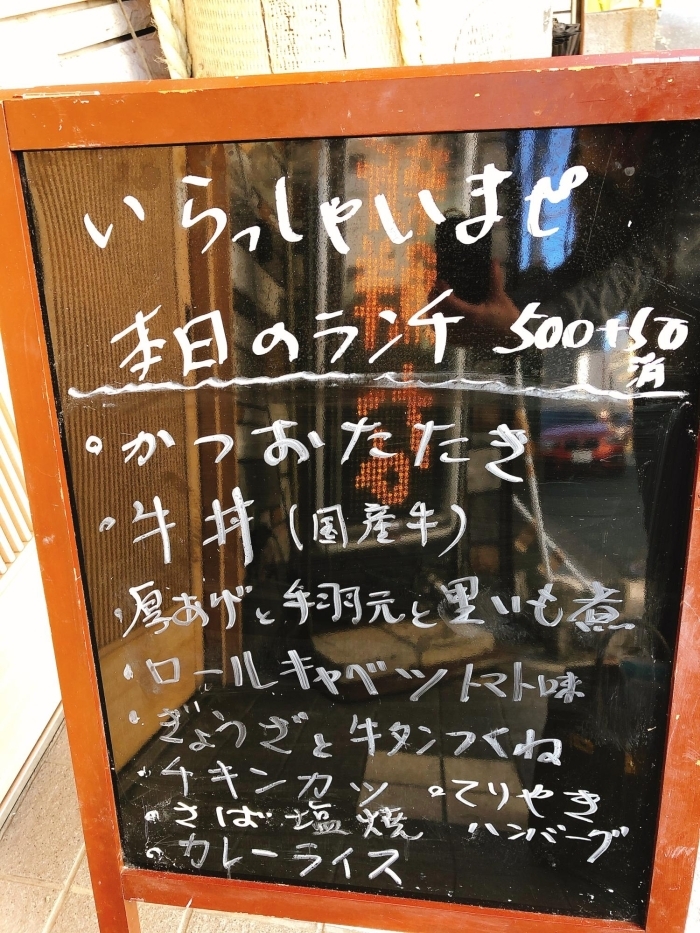 いらっしゃいませ
本日のランチ 500+50
消
かつおたたき
牛丼(国産牛)
厚あげと手羽元と里いも煮
ロールキャベツトマト味
ぎょうざと牛タンつくね
チキンカツ
てりやき
ハンバーグ
さば塩焼
カレーライス